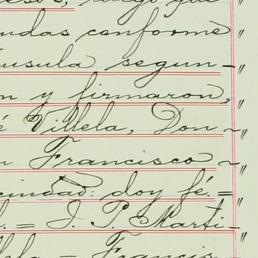 udas conforme
usula segun-
n y firmaron,
é Villela, Don-
n Francisco-
cindad: doy fé.=
J. P. Marti-
- Francis-